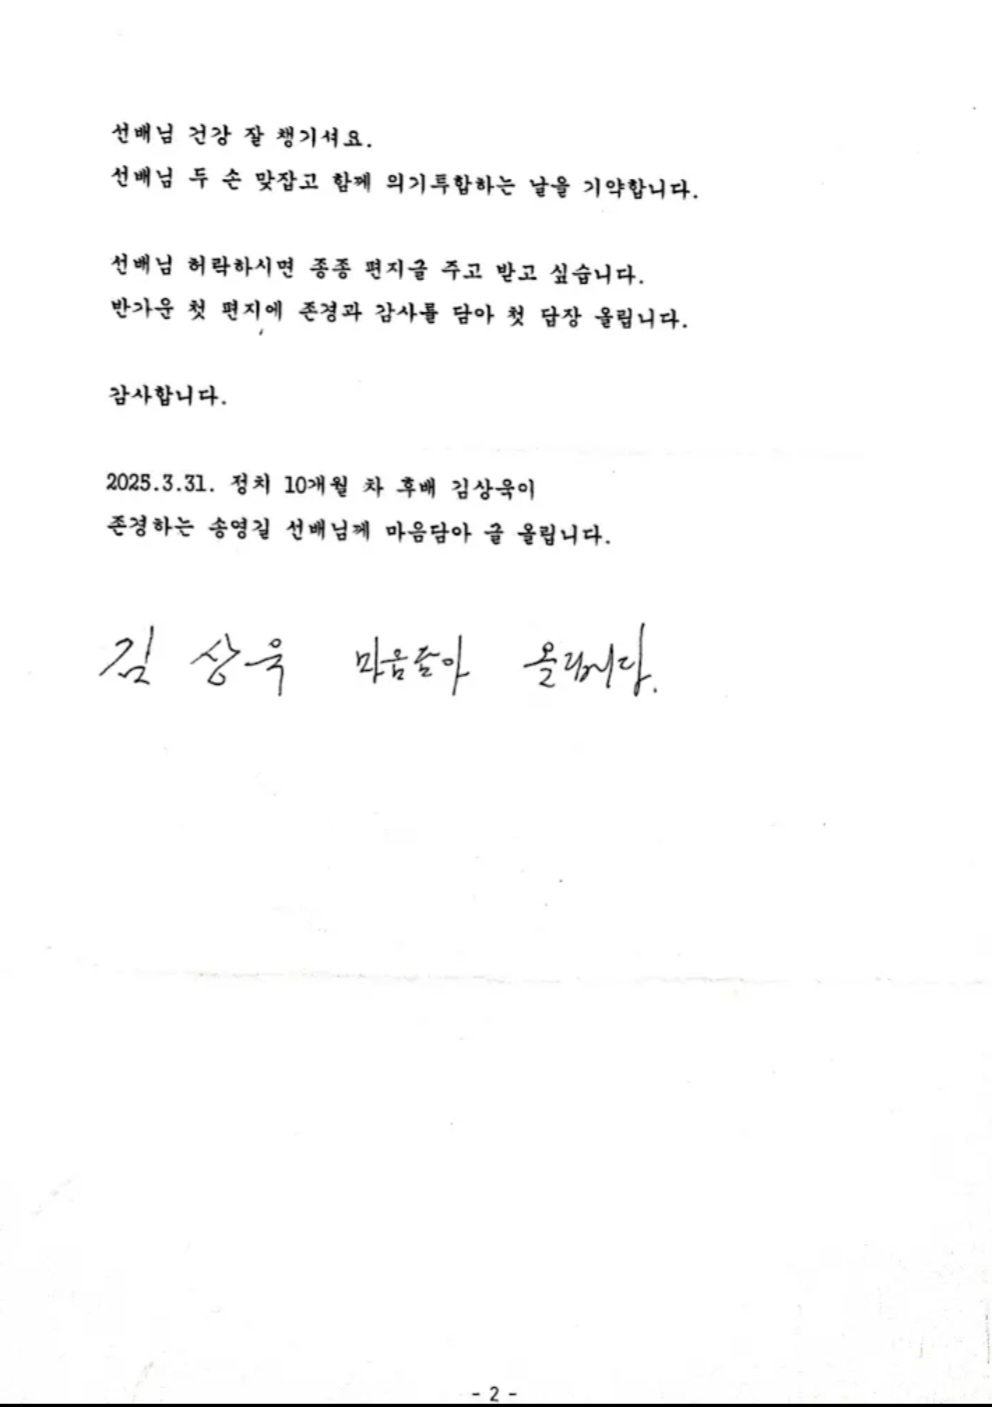 선배님 건강 잘 챙기셔요.
선배님 두 손 맞잡고 함께 의기투합하는 날을 기약합니다.
선배님 허락하시면 종종 편지글 주고 받고 싶습니다.
반가운 첫 편지에 존경과 감사를 담아 첫 답장 올립니다.
감사합니다.
2025.3.31. 정치 10개월 차 후배 김상욱이
존경하는 송영길 선배님께 마음담아 글 올립니다.
김 상욱 마음담아 올립니다.
- 2 -